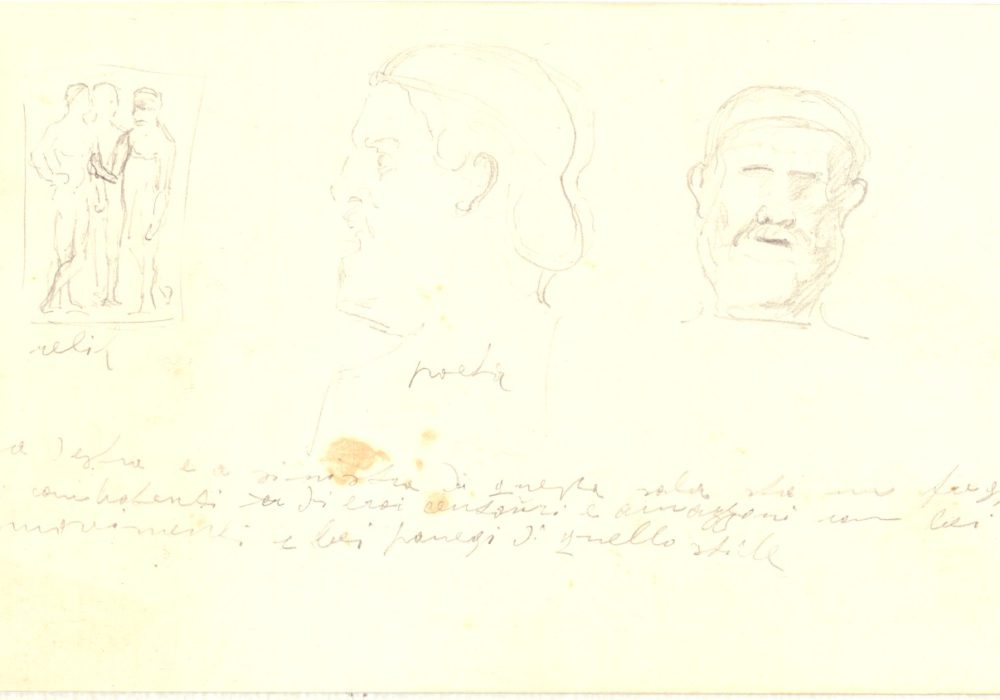 poeta
a destra e a sinistra di questa sala sta un freg
combattenti di eroi centauri e amazzoni con bei
movimenti e bei panegi di quello stile